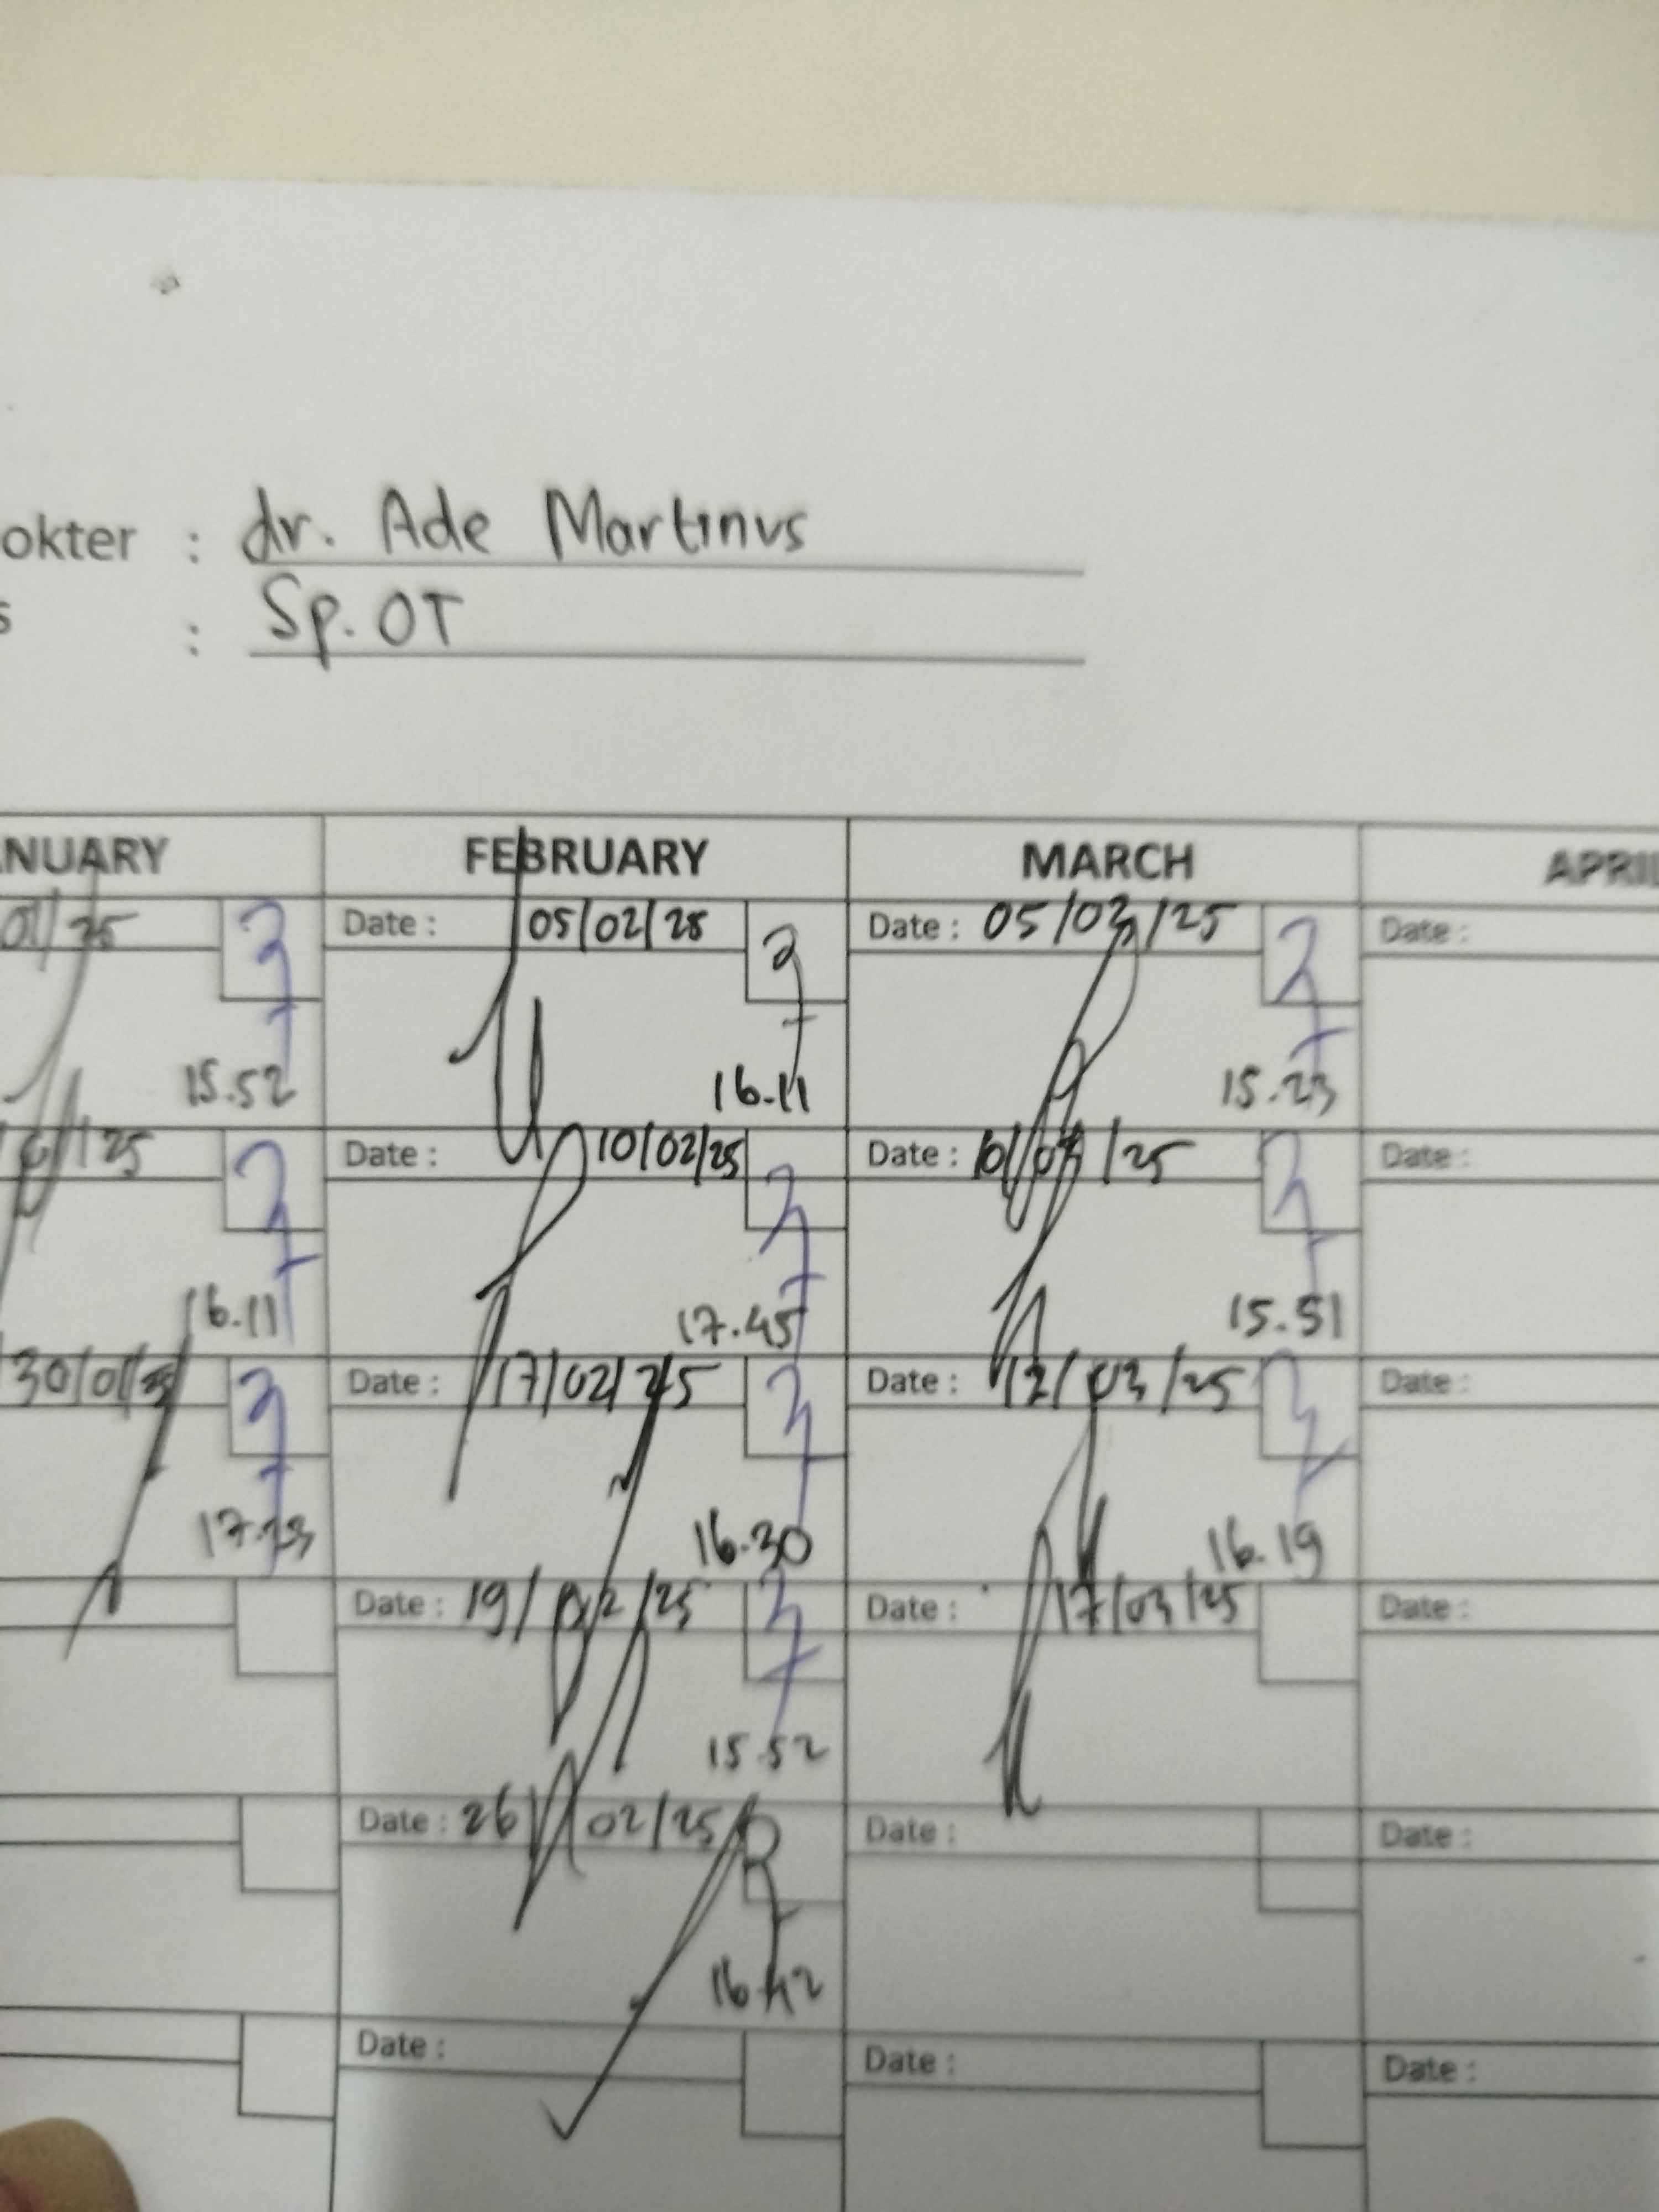 okter : dr. Ade Martinus
s : Sp. OT
NUARY FEBRUARY MARCH APRIL
01/25 Date : 05/02/25 Date : 05/03/25 Date :
15.52 16.11 15.23
/25 Date : 10/02/25 Date : 10/03/25 Date :
16.11 17.45 15.51
30/01/25 Date : 17/02/25 Date : 12/03/25 Date :
17.23 16.30 16.19
Date : 19/02/25 Date : 17/03/25 Date :
15.52
Date : 26/02/25 Date : Date :
16.42
Date : Date : Date :